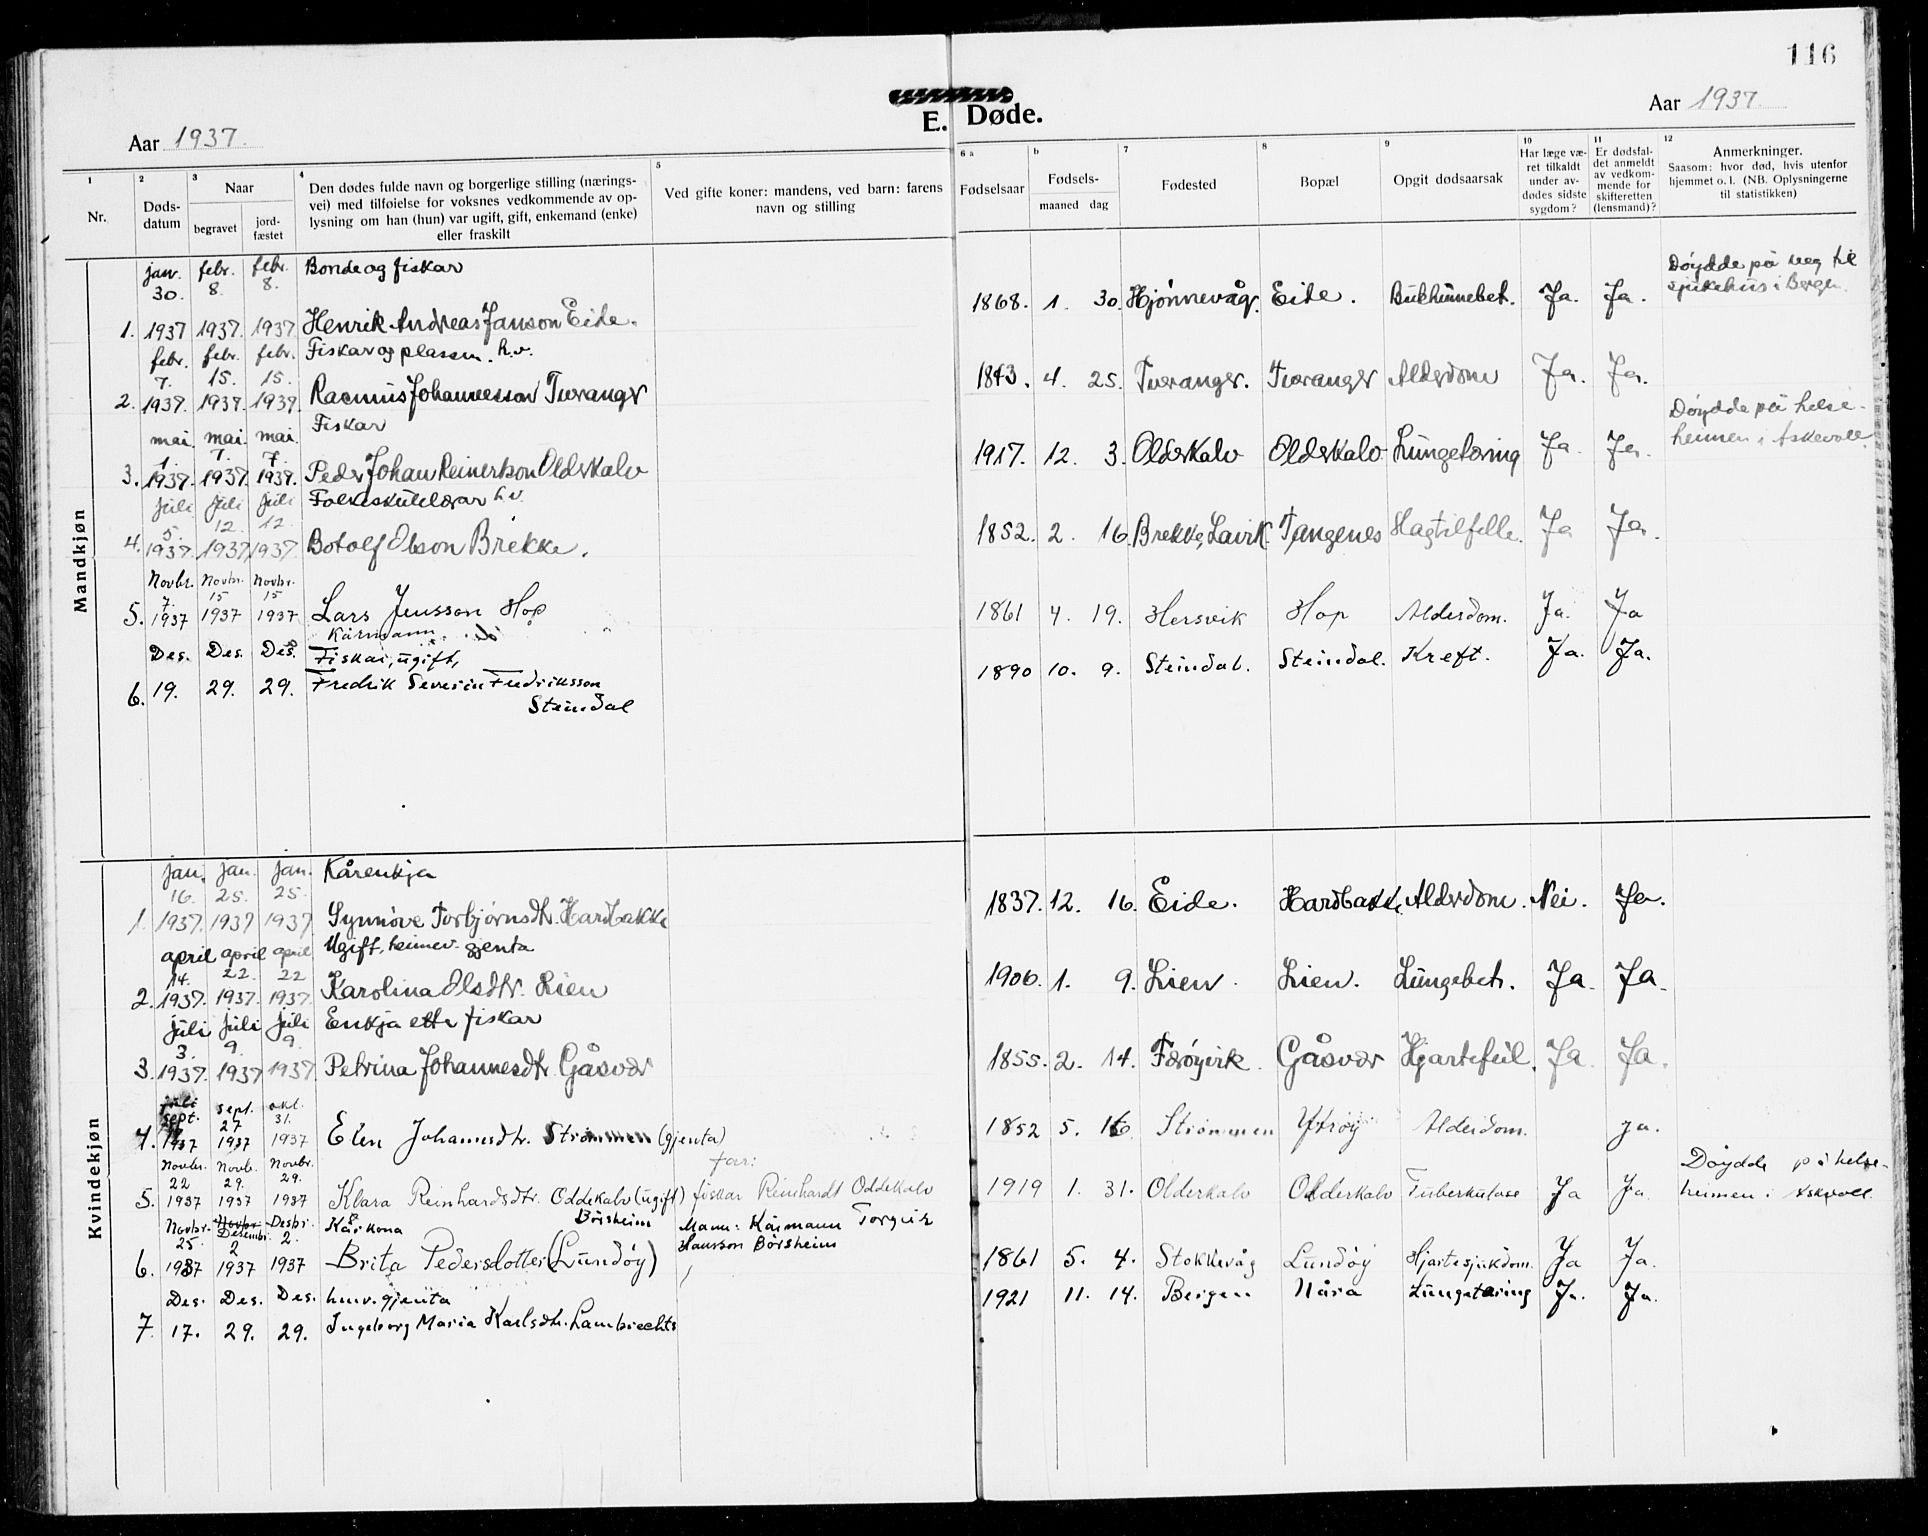 116
E. Døde.
Aar 1937.
Aar 1937
1
Nr.
2
Døds-
datum
3
Naar
begravet
jord-
fæstet
4
Den dødes fulde navn og borgerlige stilling (nærings-
vei) med tilføielse for voksnes vedkommende av op-
lysning om han (hun) var ugift, gift, enkemand (enke)
eller fraskilt
5
Ved gifte koner: mandens, ved barn: farens
navn og stilling
6 a
Fødselsaar
b
Fødsels-
maaned dag
7
Fødested
8
Bopæl
9
Opgit dødsaarsak
10
Har læge væ-
ret tilkaldt
under av-
dødes sidste
sygdom?
11
Er dødsfal-
det anmeldt
av vedkom-
mende for
skifteretten
(lensmand)?
12
Anmerkninger.
Saasom: hvor død, hvis utenfor
hjemmet o. l. (NB. Oplysningerne
til statistikken)
Mandkjøn
jan. febr. febr. Bonde og fiskar
30. 8. 8.
1. 1937 1937. 1937 Henrik Andreas Janson Eide. 1868. 1. 30. Hjønnevåg. Eide. Bukhinnebet. Ja. Ja. Døydde på veg til
sjukehus i Bergen.
febr. febr. febr. Fiskar og plassm. h.v.
7. 15. 15.
2. 1937. 1937. 1937. Rasmus Johannesson Tveranger 1843. 4. 25. Tveranger. Tveranger Alderdom Ja. Ja.
mai. mai. mai. Fiskar
1. 7. 7.
3. 1937. 1937. 1937. Peder Johan Reinertson Olderkalv 1917. 12. 3. Olderkalv Olderkalv Lungetæring Ja. Ja. Døydde på helse-
heimen i Askevoll.
juli juli juli Folkeskulelærar h.v.
5. 12. 12.
4. 1937. 1937 1937. Botolf Olson Brekke. 1852. 2. 16. Brekke, Lavik. Tangenes Slagtilfelle. Ja Ja.
Novbr. Novbr. Novbr.
7. 15 15
5. 1937 1937 1937 Lars Jensson Hop 1861 4. 19. Hersvik Hop Alderdom. Ja. Ja
Kårmann.
Des. Des. Des. Fiskar, ugift,
6. 19. 29. 29. Fredrik Severin Fredriksson 1890 10. 9. Steindal. Steindal. Kreft. Ja. Ja.
Steindal
Kvindekjøn
jan. jan. jan. Kårenkja
16. 25. 25.
1. 1937. 1937 1937 Synnøve Torbjørnsdtr. Hardbakke 1837. 12. 16. Eide. Hardbakke. Alderdom. Nei. Ja.
april april april Ugift, heimev. gjenta
14. 22. 22
2. 1937. 1937. 1937. Karolina Olsdtr. Lien 1906. 1. 9. Lien. Lien. Lungebet. Ja. Ja.
juli juli juli Enkja etter fiskar
3. 9. 9.
3. 1937. 1937 1937. Petrina Johannesdtr. Gåsvær 1855. 2. 14. Færøyvik. Gåsvær Hjartefeil. Ja. Ja.
sept. sept. okt.
27 31.
4. 1937 1937 1937 Elen Johannesdtr. Strømmen (gjenta) 1852 5. 16 Strømmen Ytrøy Alderdom. Ja.
Novbr. Novb. Novbr. Far:
22 29. 29.
5. 1937 1937 1937 Klara Reinhardsdtr. Oddekalv (ugift) fiskar Reinhardt Oddekalv 1919 1. 31. Olderkalv Olderkalv Tuberkulose Ja Ja. Døydde på helse-
heimen i Askvoll.
Novbr. Novbr. Desbr. Kårkona Börsheim Mann: Kårmann Torgeir
Desembr.
25. 2 2. Hansson Börsheim
6. 1937 1937 1937 Brita Pedersdotter (Lundøy) 1861 5. 4. Stokkevåg Lundøy Hjartesjukdom. Ja Ja.
Des. Des. Des. hmv. gjenta
7. 17. 29. 29. Ingeborg Maria Karlsdtr. Lambrechts 1921 11. 14. Bergen Nåra Lungetæring Ja. Ja.